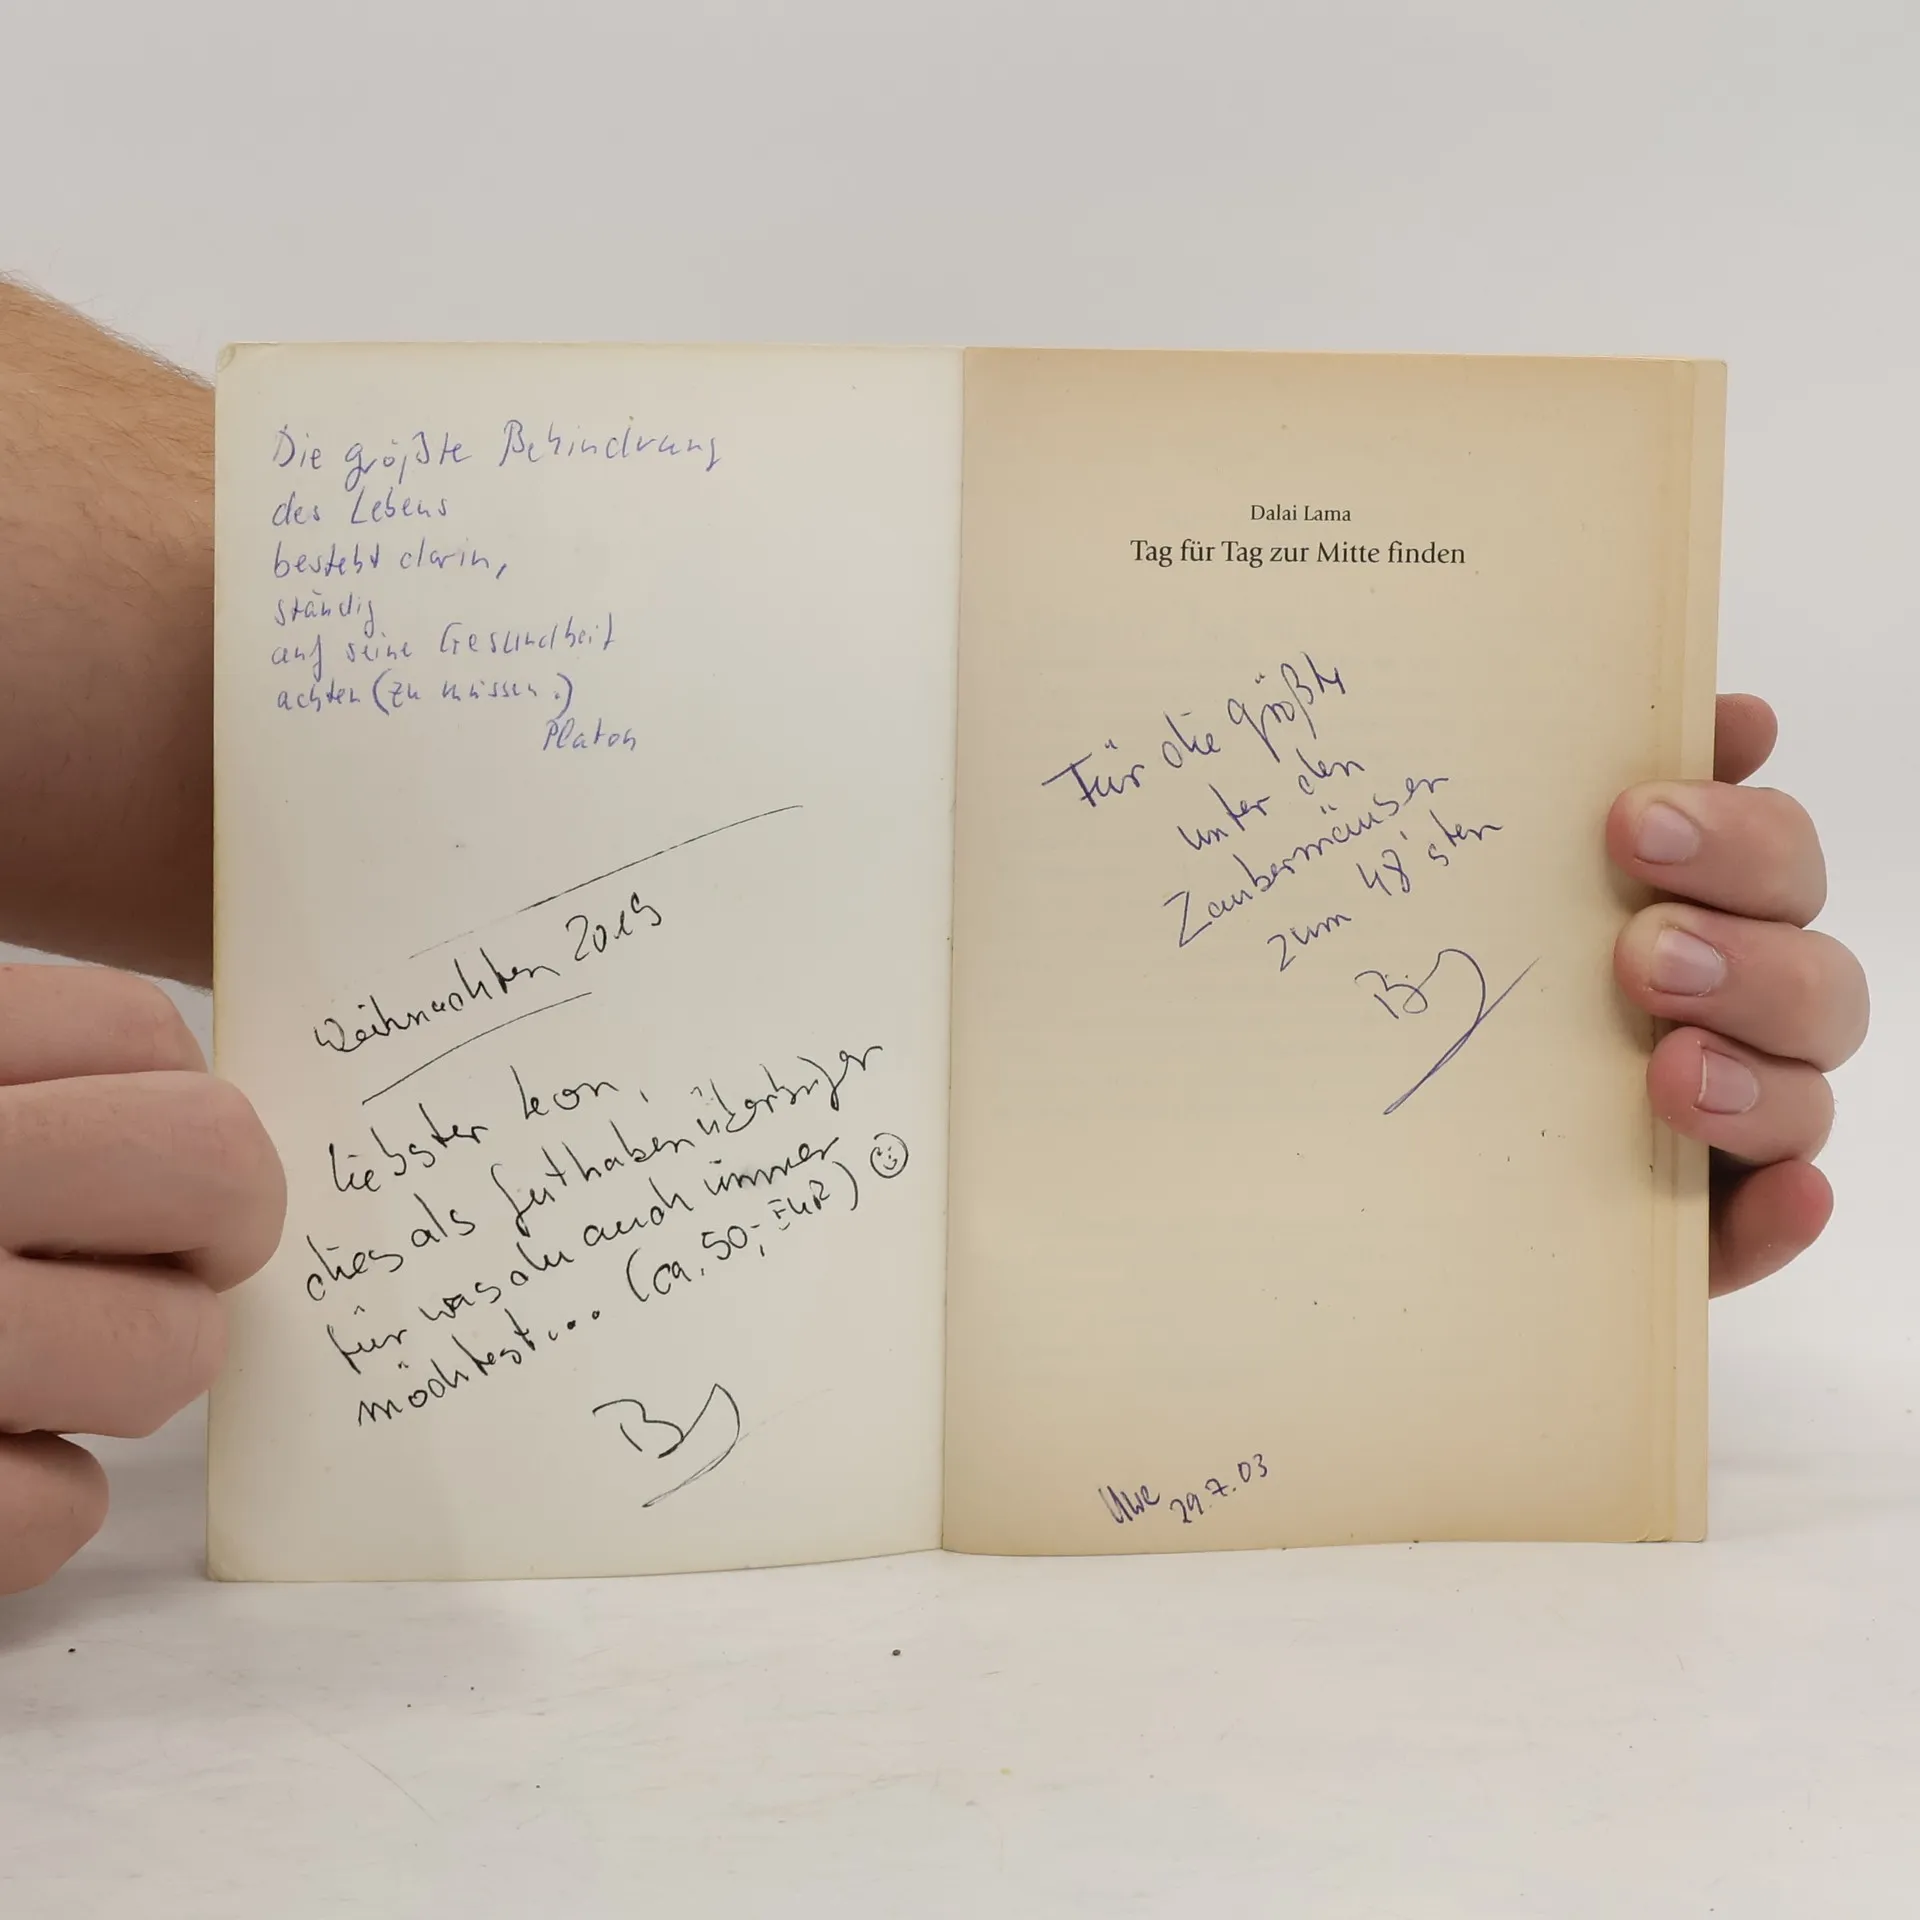 Die größte Behindrung
des Lebens
besteht darin,
ständig
auf seine Gesundheit
achten (zu müssen.)
Platon
Weihnachten 2019
Liebster Leon,
dies als Guthaben überbringer
für was du auch immer
möchtest... (ca. 50,- EUR)
Dalai Lama
Tag für Tag zur Mitte finden
Für die größte
unter den
Zaubermäusen
zum 48'sten
Uwe 29.7.03